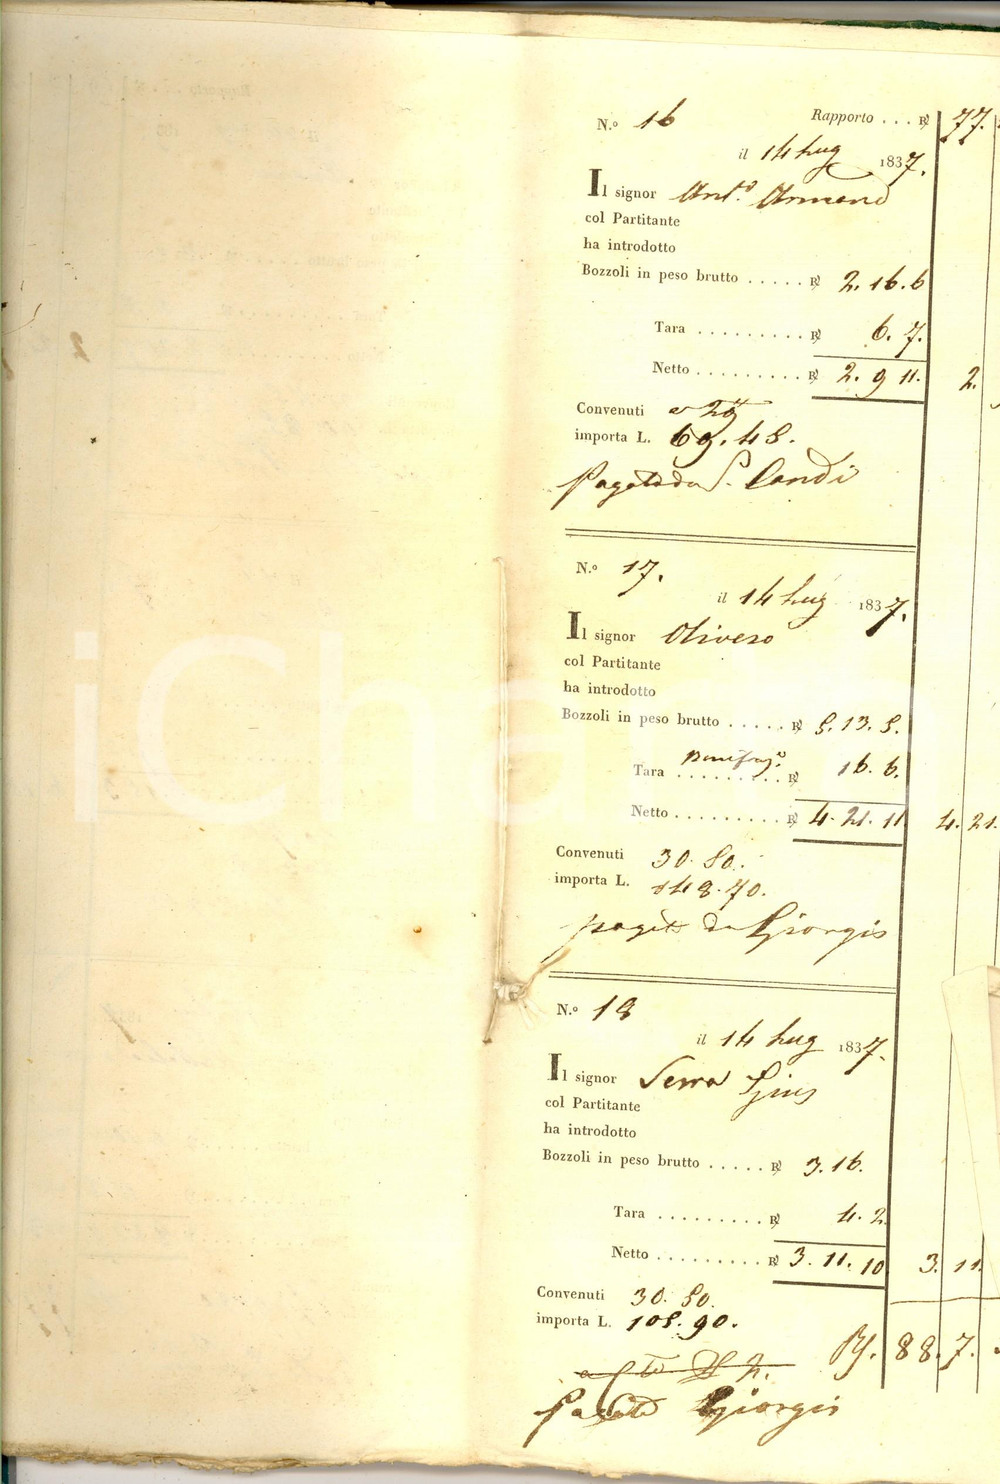 N.º 16 Rapporto . . . R) 77.
il 14 Lug 1837.
Il signor Ant.º Armand
col Partitante
ha introdotto
Bozzoli in peso brutto . . . . . R) 2. 16. 6
Tara . . . . . . . . . R) 6. 7.
Netto . . . . . . . . . R) 2. 9 11. 2.
Convenuti
importa L. 69. 48.
Pagato da S. Candi
N.º 17.
il 14 Lug 1837.
Il signor Olivero
col Partitante
ha introdotto
Bozzoli in peso brutto . . . . . R) 5. 13. 5.
Tara . . . . . . . . . R) 16. 6.
Netto . . . . . . . . . R) 4. 21. 11 4. 21.
Convenuti 30. 50.
importa L. 148. 70.
pagto da Giorgis
N.º 18
il 14 Lug 1837.
Il signor Serra Gius
col Partitante
ha introdotto
Bozzoli in peso brutto . . . . . R) 3. 16.
Tara . . . . . . . . . R) 4. 2
Netto . . . . . . . . . R) 3. 11. 10 3. 11.
Convenuti 30. 50.
importa L. 105. 90.
88. 7.
Pagato Giorgis
iCharta